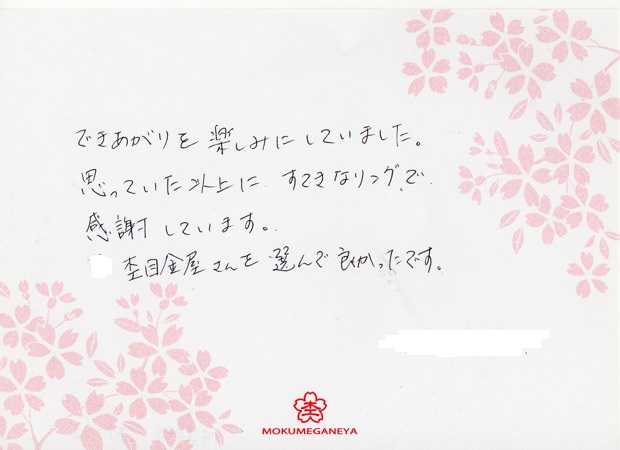 できあがりを楽しみにしていました。
思っていた以上に すてきなリングで
感謝しています。
杢目金屋さんを選んで良かったです。
杢
MOKUMEGANEYA